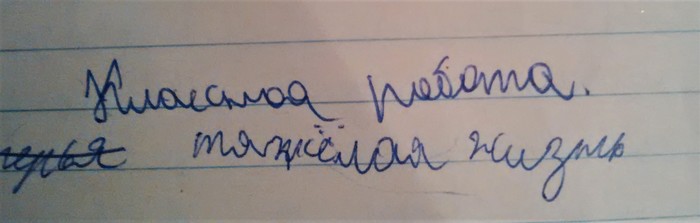 Классная работа.
тяжёлая жизнь